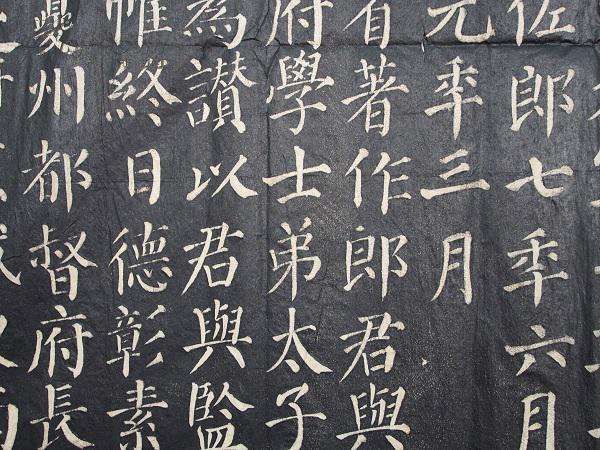 佐郎七年六月
元年三月
省著作郎君與
府學士弟太子
為讚以君與監
帷終日德彰素
夔州都督府長